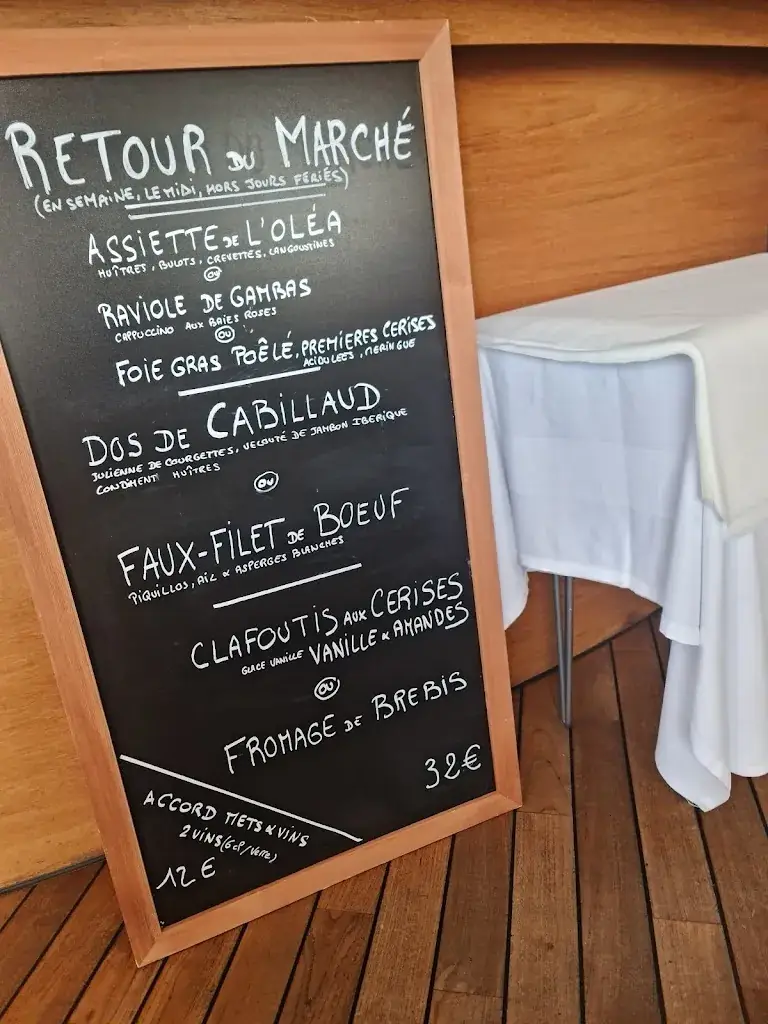 RETOUR DU MARCHÉ
(EN SEMAINE, LE MIDI, HORS JOURS FERIÉS)
ASSIETTE DE L'OLÉA
HUÎTRES, BULOTS, CREVETTES, LANGOUSTINES
OU
RAVIOLE DE GAMBAS
CAPPUCCINO AUX BAIES ROSES
OU
FOIE GRAS POÊLÉ, PREMIERES CERISES
ACIDULEES, MERINGUE
DOS DE CABILLAUD
JULIENNE DE COURGETTES, VELOUTÉ DE JAMBON IBERIQUE
CONDIMENT HUÎTRES
OU
FAUX-FILET DE BOEUF
PIQUILLOS, AIL & ASPERGES BLANCHES
CLAFOUTIS AUX CERISES
GLACE VANILLE VANILLE & AMANDES
OU
FROMAGE DE BREBIS
32€
ACCORD METS & VINS
2 VINS (6cl/Verre)
12€